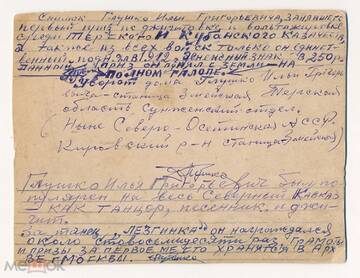 Снимок Глушко Илья Григорьевича, занявшего
первый приз по джигитовки и вольтижировки
среди Терского и Кубанского казачества
а также из всех войск только он единст-
венный поднял в 1912
данной царя
полном галопе.
Глушко Илья Григорь
станица Змейская Терская
область Сунженский отдел.
(Ныне Северо-Осетинская АССР.
Кировский р-н станица Змейская)
Глушко
Глушко Илья Григорьевич был по-
пулярен на весь Северный Кавказ
как танцор, песенник и джи-
гит.
За танец "Лезгинка" он награждался
около стовосьмидесяти раз. Грамоты
и призы за первое место хранится в арх
ве Москвы. Глушко